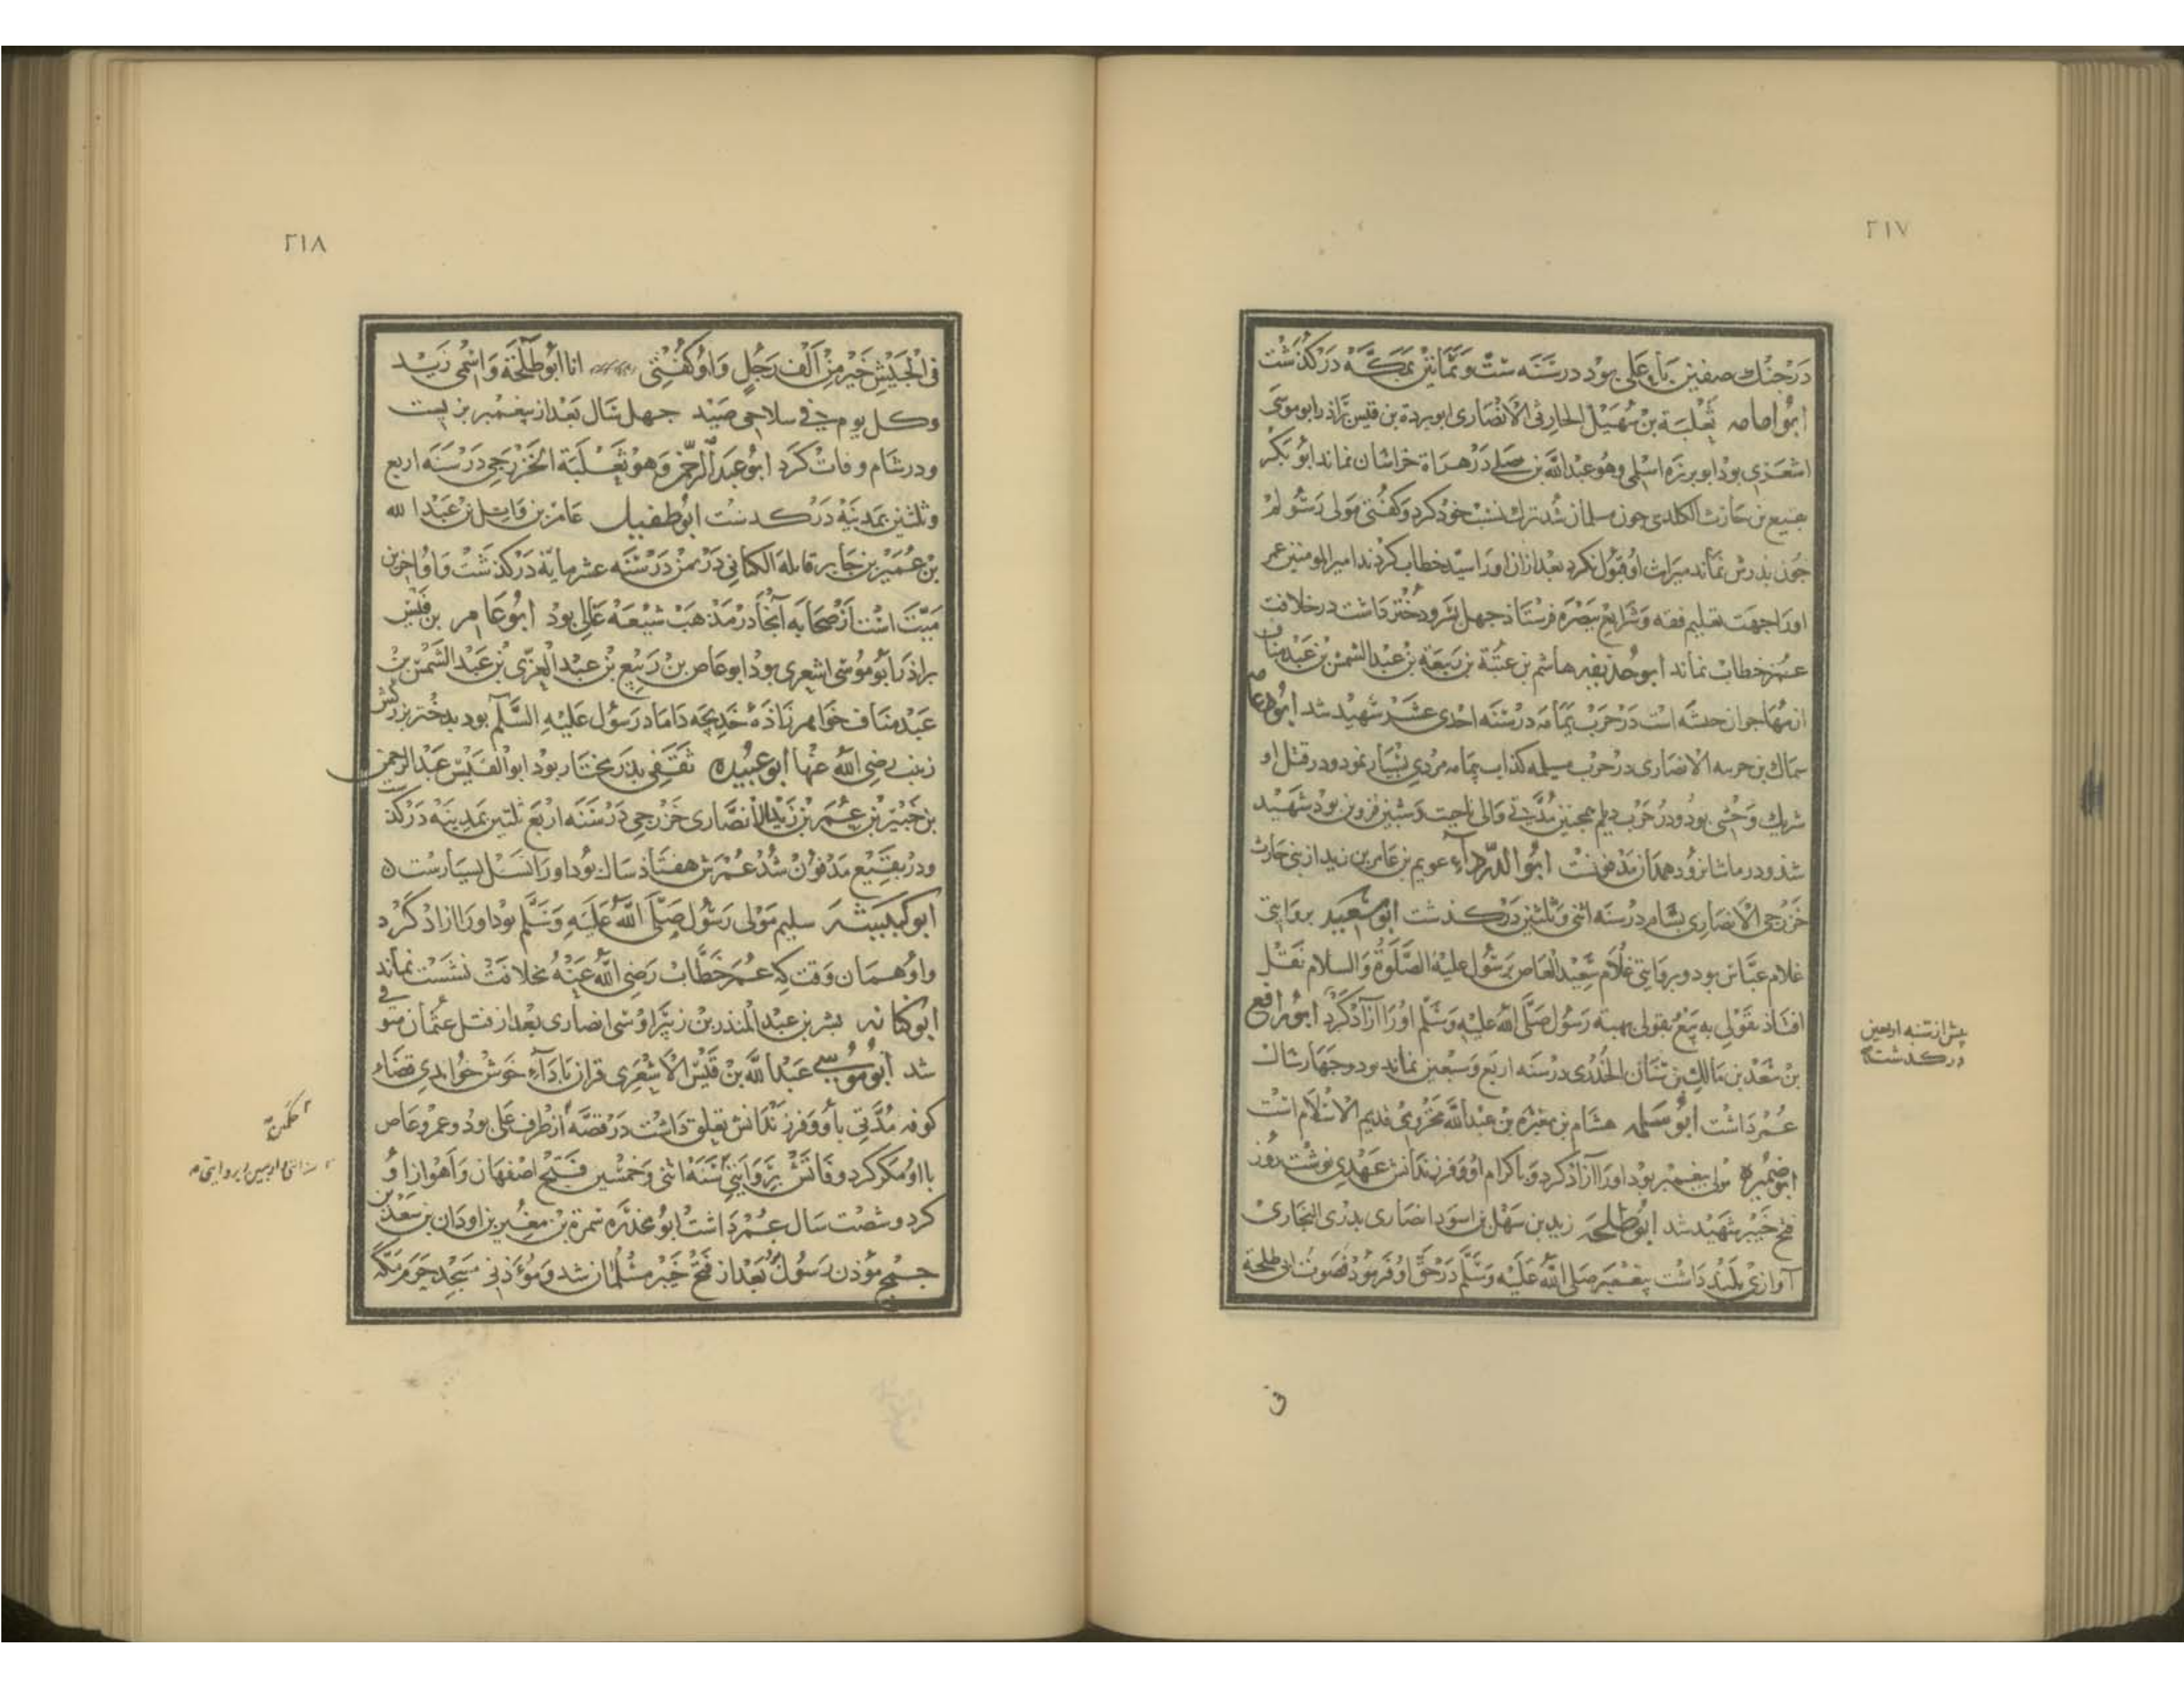 ٢١٧
در جنك صفين با علی بود در سنه ست و ثمانين بمكه در كذشت
ابو امامه ثعلبة بن سهيل الحارثی الانصاری ابو بردة بن قيس براذر ابو موسی
اشعری بود ابو برزه اسلمی وهو عبد الله بن نضله در هراة خراسان نماند ابو بكر
بن حارث الكلدی چون مسلمان شد ترك نسب خود كرد و كفتی مولی رسولم
چون پدرش نماند ميراث او قبول نكرد بعد ازان اورا سيد خطاب كردند امير المومنين عمر
اورا جهت تعليم فقه و شرايع ببصره فرستاذ چهل پسر و دختر داشت در خلافت
عمر خطاب نماند ابو حذيفه هاشم بن عتبة بن ربيعة بن عبد الشمس بن عبد مناف
از مهاجران حبشه است در حرب يمامه در سنه احدی عشر شهيد شد ابو دجانه
سماك بن خرشه الانصاری در حرب مسيلمه كذاب بيمامه مردی بسيار نمود و در قتل او
شريك وحشی بود و در حرب ديلم همچنين مدتی والی ناحيت دستبی قزوين بود شهيد
شذ و در ماشانرود همدان مدفونست ابو الدرداء عويم بن عامر بن زيد از بنی حارث
خزرجی الانصاری بشام در سنه اثنی و ثلثين در كذشت ابو سعيد بروايتی
غلام عباس بود و بروايتی غلام سعيد العاص بر رسول عليه الصلوة والسلام نقل
افتاذ بقولی به بيع بقولی بهبه رسول صلی الله عليه وسلم اورا آزاد كرد ابو رافع
پيش از سنه اربعين
در كذشت
بن سعد بن مالك بن سنان الخدری در سنه اربع و سبعين نماند نود و چهار سال
عمر داشت ابو سلمه هشام بن مغيره بن عبد الله مخزومی قديم الاسلام است
ابو ضميره مولی پيغمبر بود اورا آزاد كرد و باكرام او و فرزندانش عهدی نوشت روز
فتح خيبر شهيد شد ابو طلحه زيد بن سهل بن اسود انصاری بدری النجاری
آوازی بلند داشت پيغمبر صلی الله عليه وسلم در حق او فرمود فصوت ابی طلحة
٢١٨
فی الجيش خير من الف رجل و او كفتی انا ابو طلحة و اسمی زيد
و كل يوم فی سلاحی صيد چهل سال بعد از پيغمبر بزيست
و در شام وفات كرد ابو عبد الرحمن وهو ثعلبة الخزرجی در سنه اربع
و ثلثين بمدينه در كذشت ابو طفيل عامر بن واثل بن عبد الله
بن عمير بن جابر الكنانی در يمن در سنه عشر مايه در كذشت و او آخرين
ميت است از صحابه آنجا در مذهب شيعه غالی بود ابو عامر بن قيس
براذر ابو موسی اشعری بود ابو عاص بن ربيع بن عبد العزی بن عبد الشمس بن
عبد مناف خواهر زاذۀ خديجه داماد رسول عليه السلم بود بدختر بزركش
زينب رضی الله عنها ابو عبيده ثقفی پدر مختار بود ابو القيس عبد الرحمن
بن جبير بن عمر بن زيد الانصاری خزرجی در سنه اربع ثلثين بمدينه در كذشت
و در بقيع مدفون شد عمرش هفتاذ سال بود اورا نسل بسيارست
ابو كبشه سليم مولی رسول صلی الله عليه وسلم بود اورا ازاد كرد
و او همان وقت كه عمر خطاب رضی الله عنه بخلافت نشست نماند
ابو كنانه بشر بن عبد المنذر بن زبير اوسی انصاری بعد از قتل عثمان متوفی
شد ابو موسی عبد الله بن قيس الاشعری قران باداء خوش خواندی قضاء
كوفه مدتی باو و فرزندانش تعلق داشت در قصه از طرف علی بود و عمرو عاص
حكمين
با او مكر كرد وفاتش بروايتی سنه اثنی و خمسين فتح اصفهان و اهواز او
اثنی اربعين و بروايتی
كرد و شصت سال عمر داشت ابو محذره سمرة بن مغير بن اودان بن سعد بن
جمح مؤذن رسول بعد از فتح خيبر مسلمان شد و مؤذنی مسجد حرم مكه